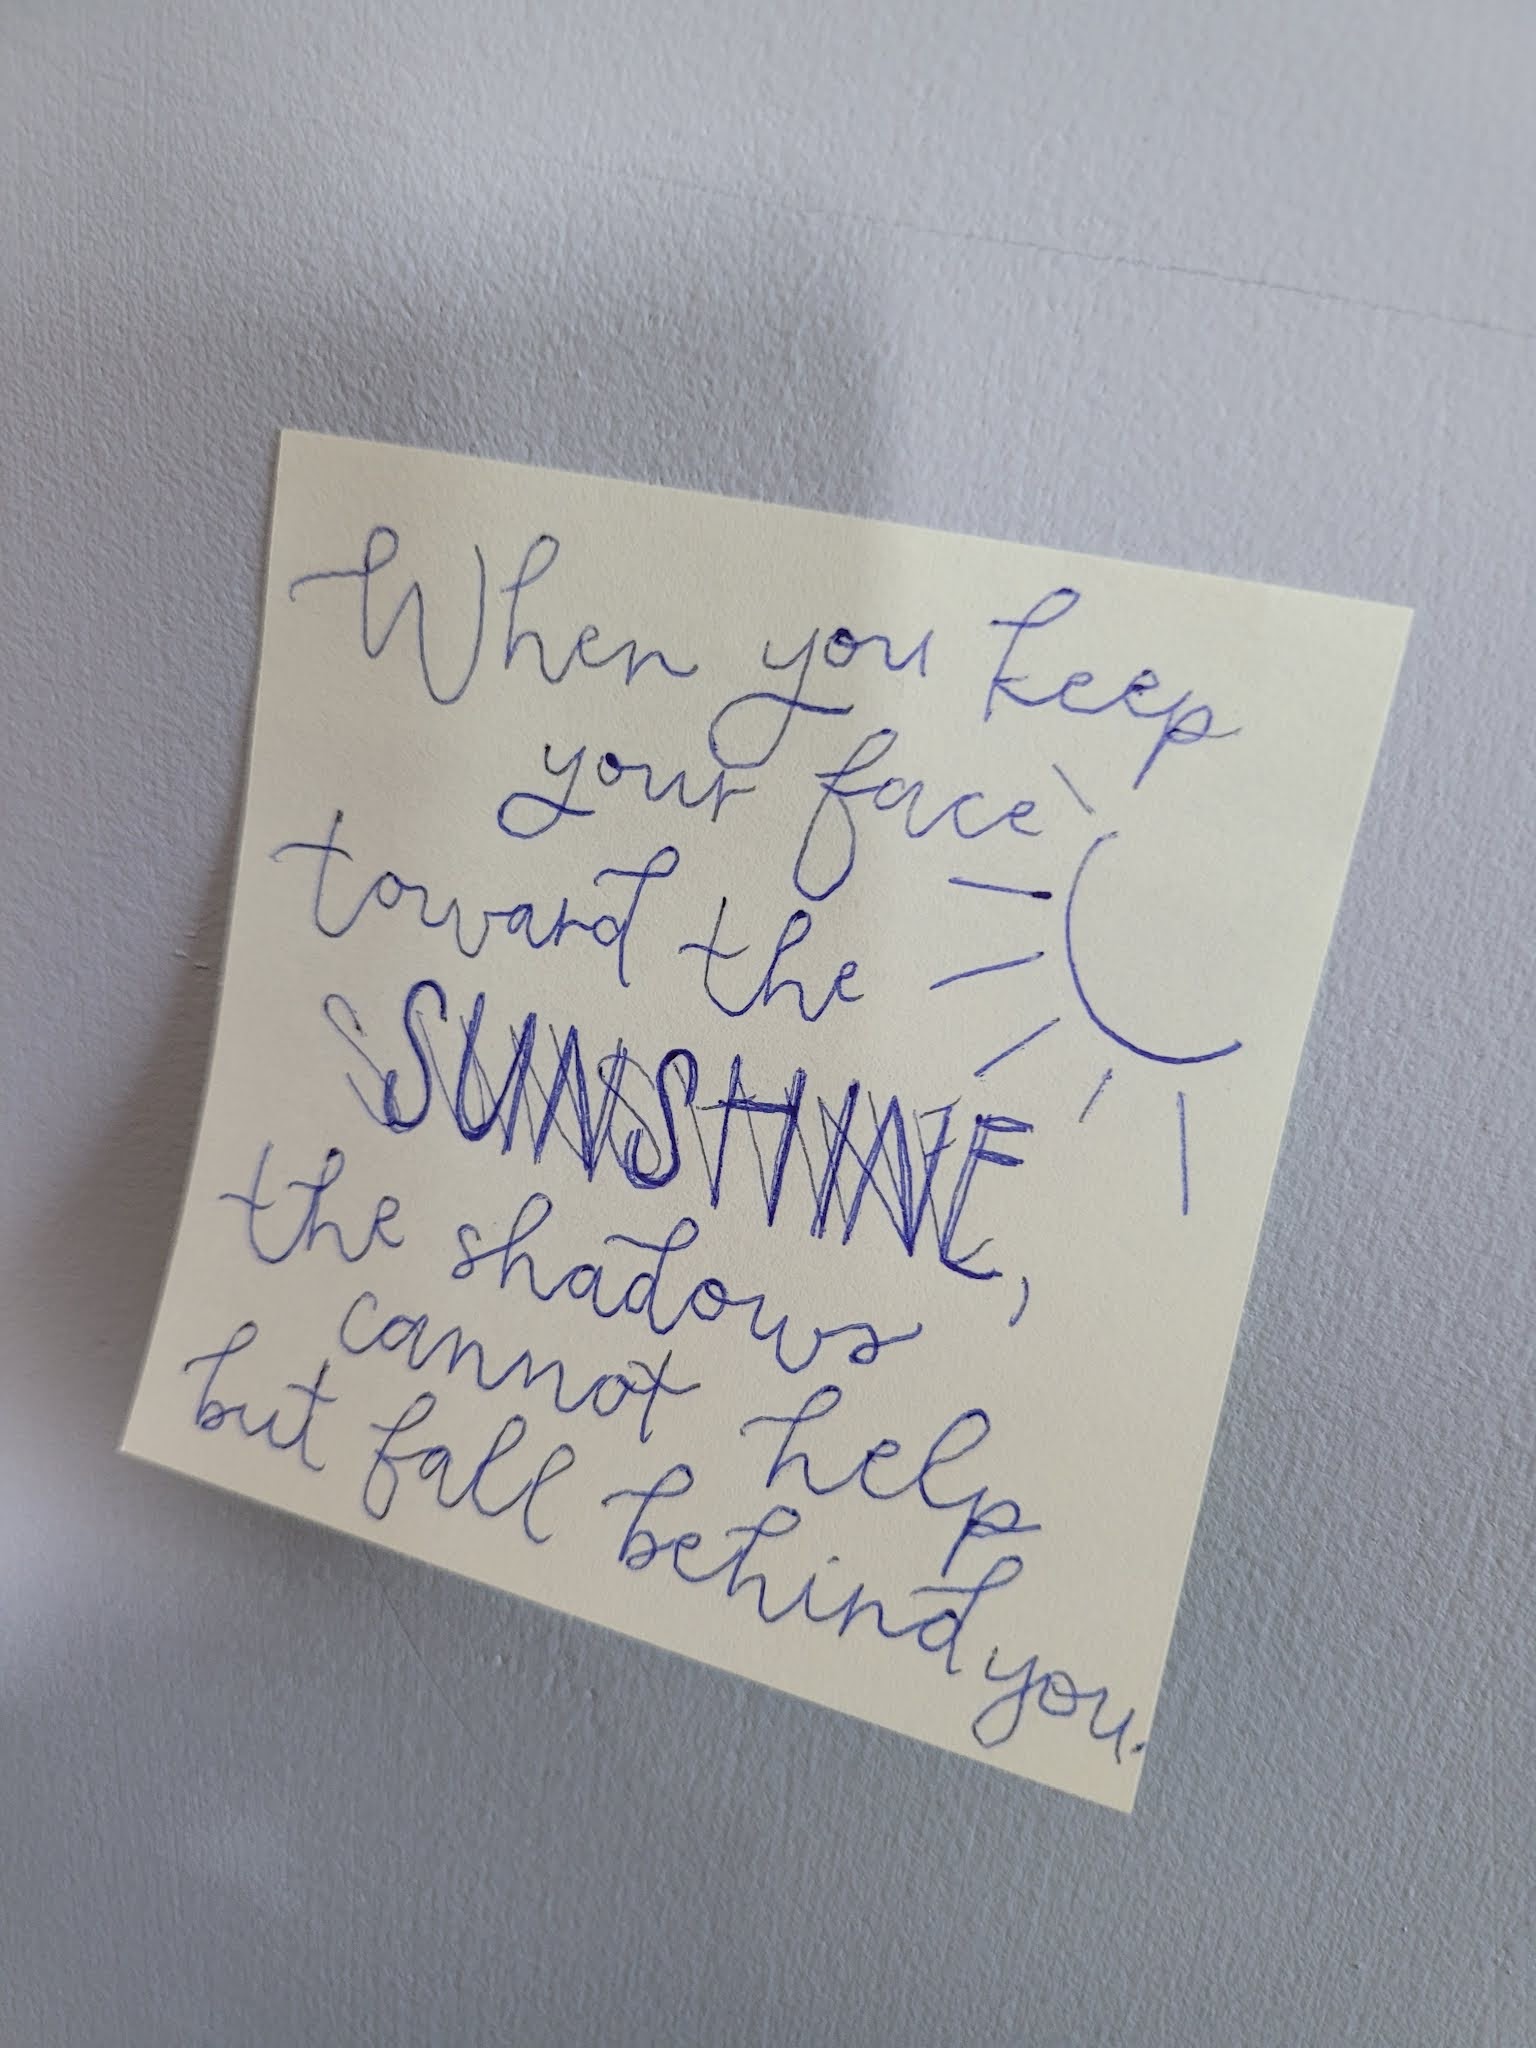 When you keep
your face
toward the
SUNSHINE,
the shadows
cannot help
but fall behind you.